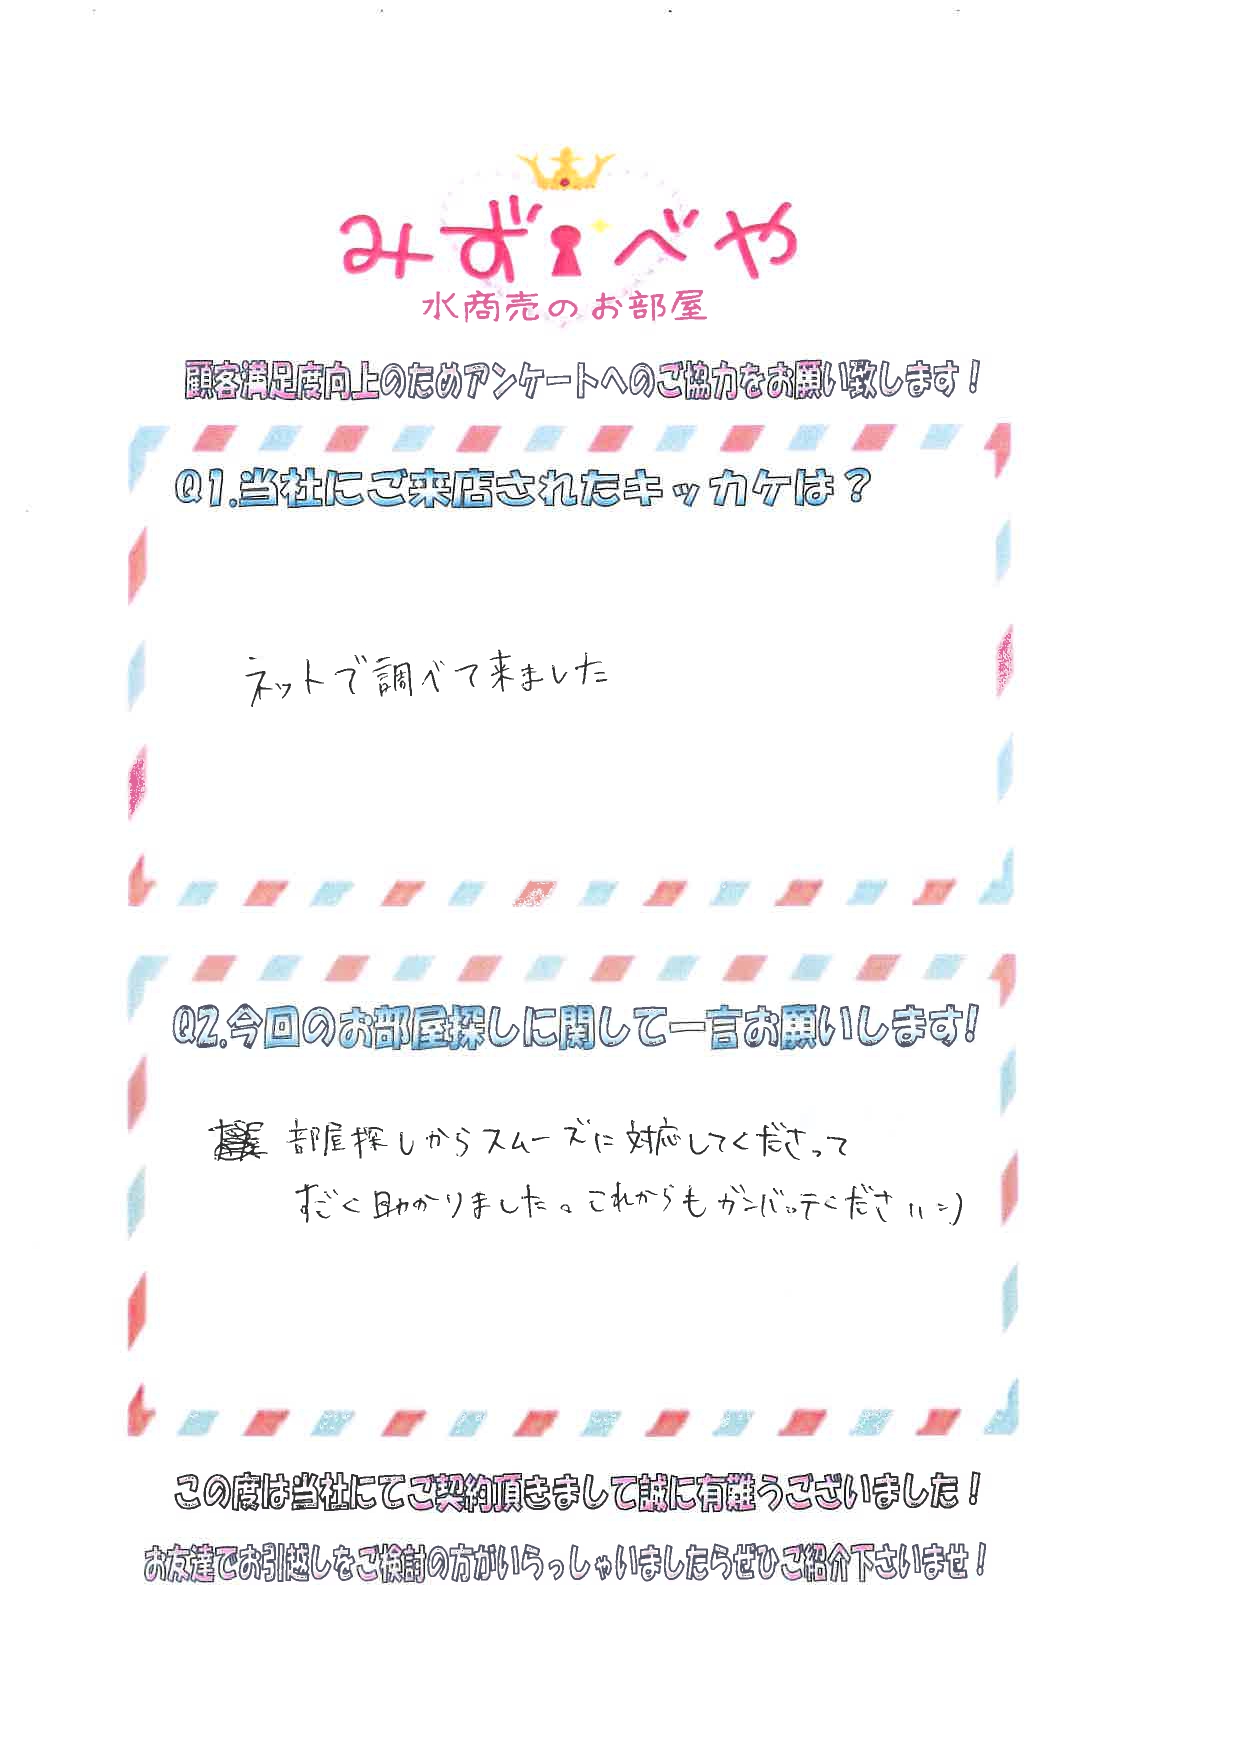 みずべや
水商売のお部屋
顧客満足度向上のためアンケートへのご協力をお願い致します！
Q1.当社にご来店されたキッカケは？
ネットで調べて来ました
Q2.今回のお部屋探しに関して一言お願いします!
部屋探しからスムーズに対応してくださって
すごく助かりました。これからもガンバッテください=)
この度は当社にてご契約頂きまして誠に有難うございました！
お友達でお引越しをご検討の方がいらっしゃいましたらぜひご紹介下さいませ！